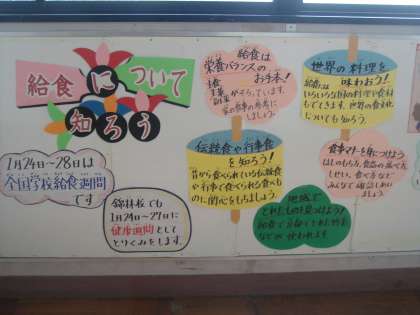 給食について
知ろう
1月24日~28日は
全国学校給食週間
です
錦林校でも
1月24日~27日に
健康週間として
とりくみをします。
給食は
栄養バランスの
お手本!
主食
主菜
副菜
がそろっています。
家の食事の参考に
しましょう。
伝統食や行事食
を知ろう!
昔から食べられている伝統食
や行事で食べられる食べもの
に関心をもちましょう。
世界の料理を
味わおう!
給食は、
いろいろな国の料理や食材
もでてきます。世界の食文化
についても知ろう。
食事マナーを身につけよう
はしのもち方、食器の並べ
方、しせい、食べ方など
みんなで確認しあい
ましょう。
地域で
とれたものを見つけよう!
給食で
などが使われます。